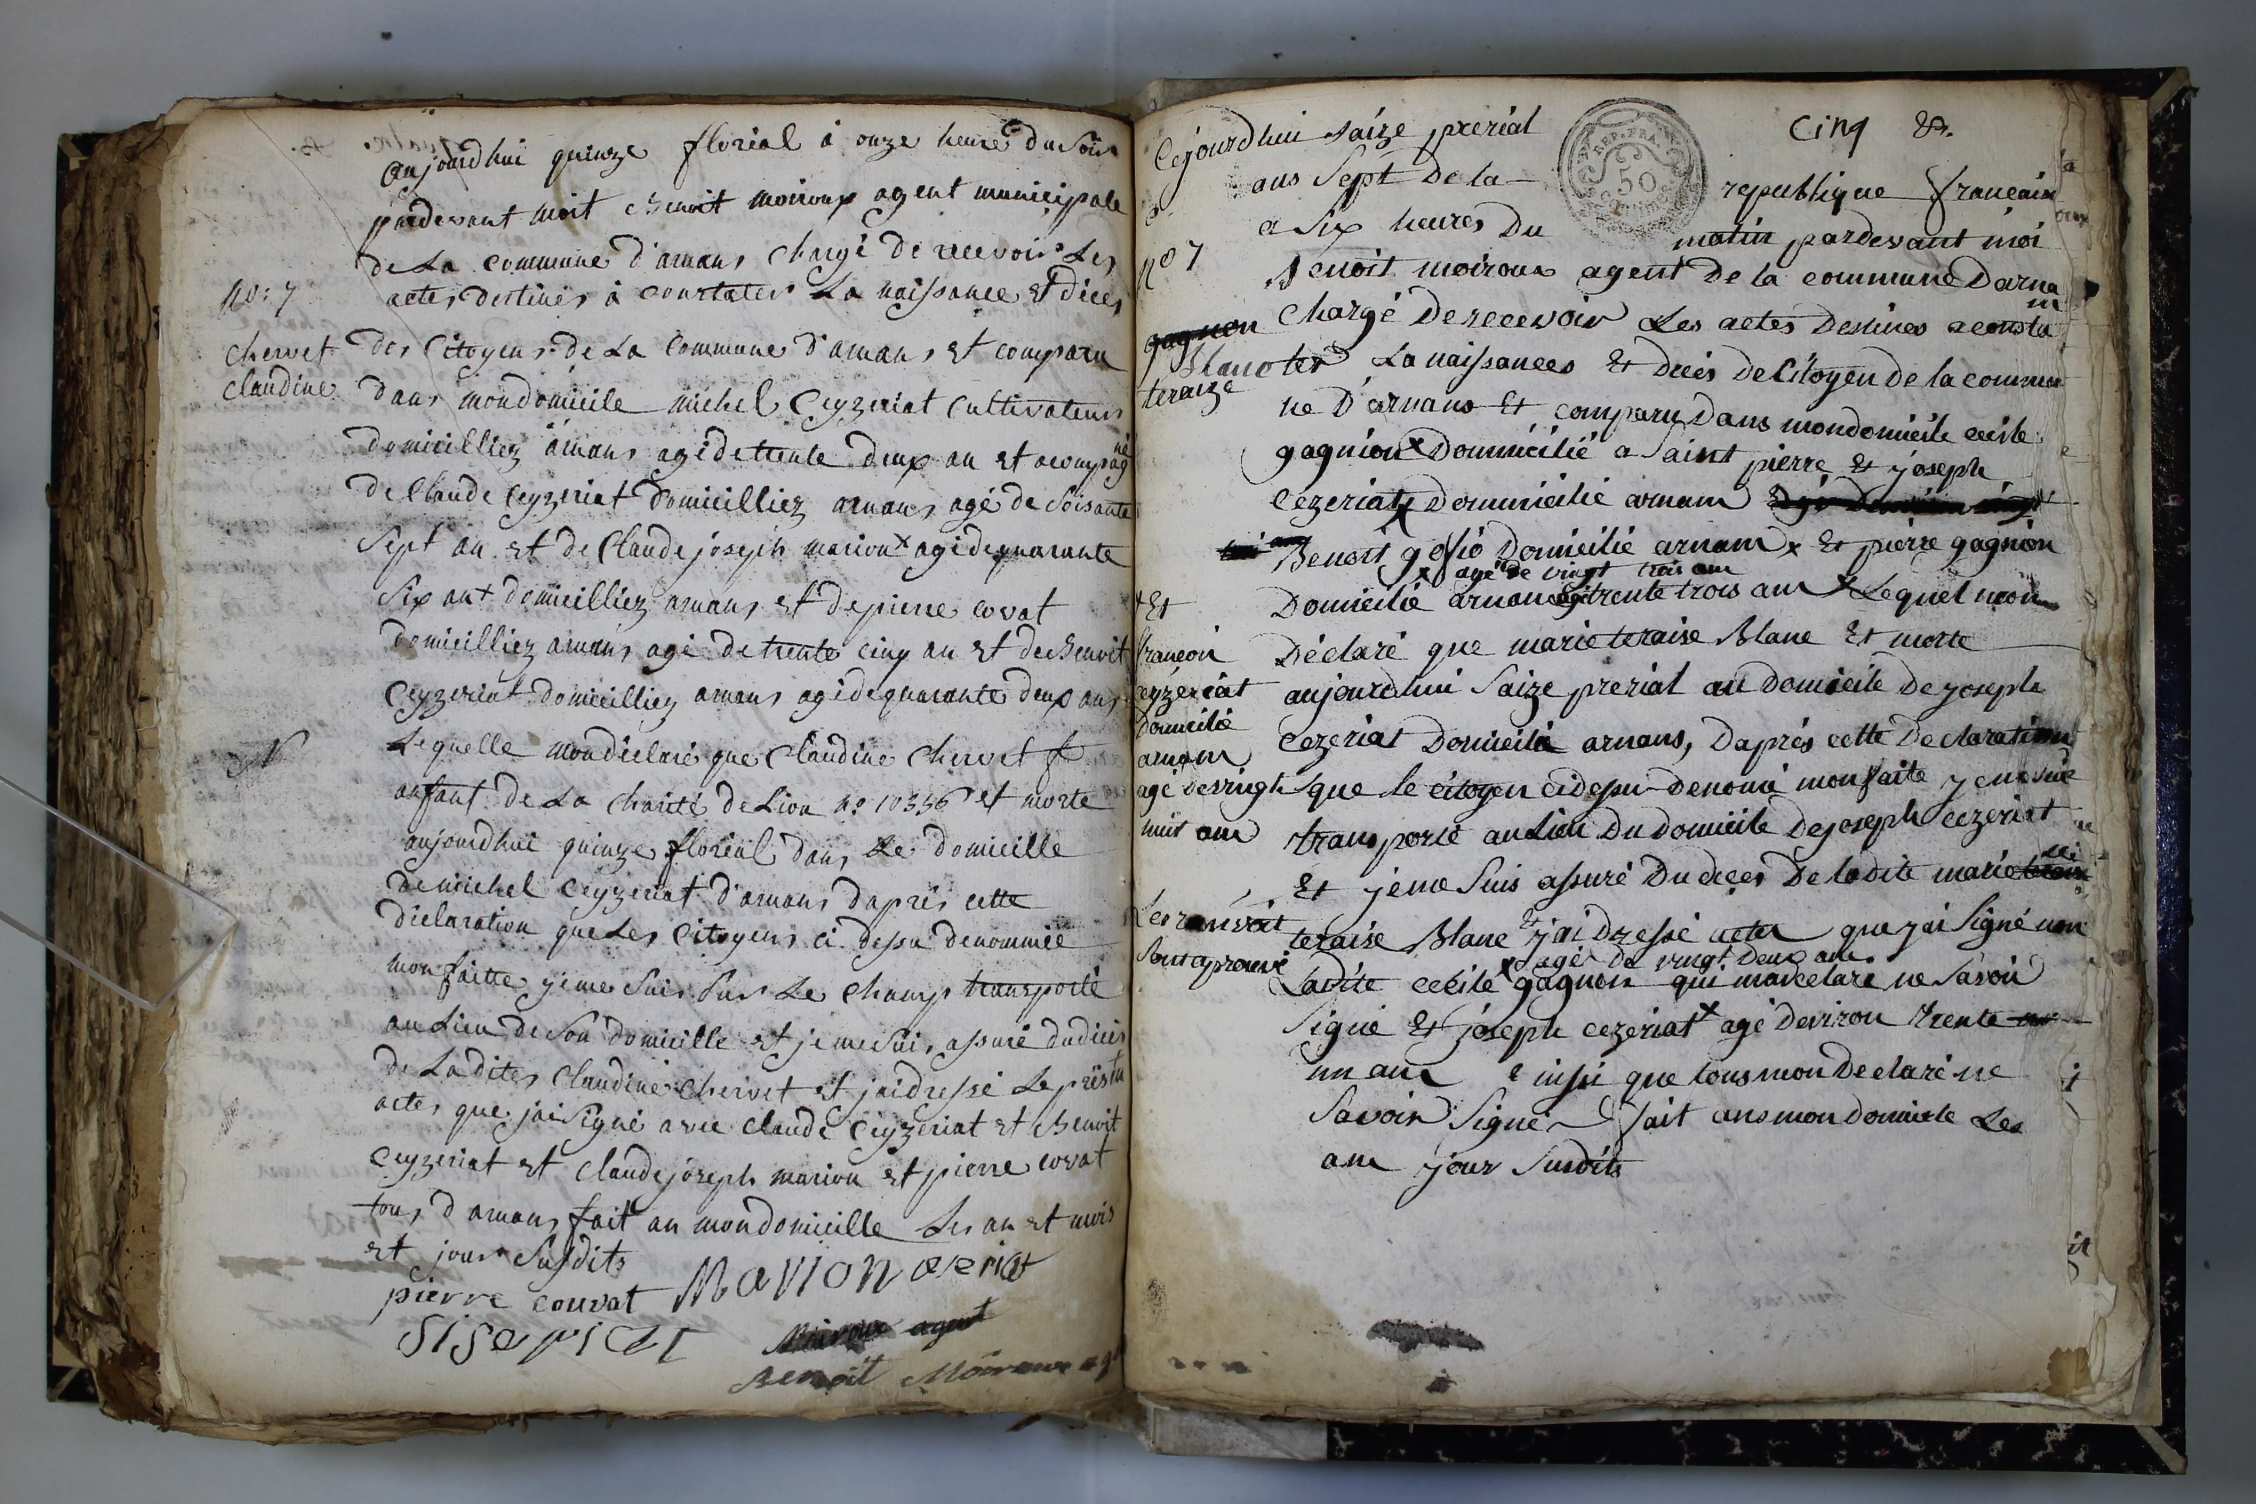 aujourdhui quinze florial à onze heure du Soir
pardevant moit Benoit moiroux agent municipale
de La Commune d'arnans Chargé de recevoir Les
No: 7
actes destinés à Constater La naissance et décès
chervet
claudine
des Citoyens de La Commune d'arnans et comparu
dans mondomicile michel Ceyzeriat Cultivateur
domicilliez arnans agé de trente deux an et acompagné
de Claude Ceyzeriat Domicilliez arnans agé de Soisante
Sept an et de Claude joseph marion x agé de quarante
Six ant domicilliez arnans et de pierre covat
domicilliez arnans agé de trente cinq an et de Benoit
Ceyzeriat domicilliez arnans agé de quarante deux ans
Lequelle mondéclaré que Claudine Chervet
anfant de La Charité de Lion no 10336 et morte
aujourdhui quinze florial dans Le domicille
de michel Ceyzeriat d'arnans daprès cette
déclaration que Les Citoyens ci dessu denommée
mon faitte jeme Suis Sur Le Champ transporté
au Lieu de Son domicille et je me Suis assuré du décès
de Ladites Claudine Chervet et jai dressé Le présent
actes que jai Signé avec Claude Ceyzeriat et Benoit
Ceyzeriat et Claude joseph marion et pierre covat
tous d'arnans fait an mondomicille Les an et mois
et jour Susdits
pierre couvat Marion
Moiroux agent
Benoit Moiroux
Cinq
Cejourdhui saize prerial
ans Sept De la
REP. FRA.
50
republique francaise
a Six heures Du
matin pardevant moi
no 7
Benoit moiroux agent De la commune Darnam
Chargé De recevoir Les actes Destinés a consta
gagnion
Blanc
teraize
ter La naissances Et Décès De Citoyen De la commu
ne D'arnans Et comparu Dans mondomicile cecile
gagnion x Domicilié a Saint pierre Et joseph
Cezeriat x Domicilié arnam
Benoit goffio Domicilié arnam x Et pierre gagnion
x agé de vingt trois an
Domicilié arnans agé trente trois an x Lequel mon
x Et
francoi
ceyzériat
Domicilié
arnam
agé de vingt
huit an
Déclaré que marie teraise Blanc Et morte
aujourdhui Saize prerial au Domicile De joseph
Cezeriat Domicilié arnans, Daprés cette Declaration
que le citoyen cidesu Denomé mon faite je me suis
transporté au Lieu Du Domicile De joseph cezeriat
Et je me Suis assuré Du décès De ladite marie
Les ranvoit
Sont aprouvé
teraise Blanc Et j'ai Dressé acte que j'ai Signé non
x agés De vingt Deux an
Ladite cecile x gagnon qui ma declaré ne Savoir
Signé Et joseph cezeriat x agé Deviron trente
un an einsi que tous mon Declaré ne
Savoir Signé fait ans mon Domicile Les
an jour Susdits